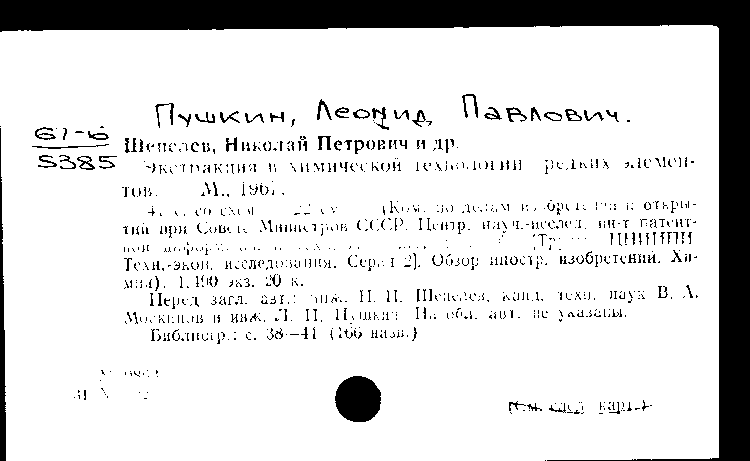 Пушкин, Леонид Павлович.
61-6
5385
Шепелев, Николай Петрович и др.
Экстракция в химической технологии редких элемен-
тов. М., 1967.
(Ком. по делам изобретений и откры-
тий при Совете Министров СССР. Центр. науч.-исслед. ин-т патент-
ной ЦНИИПИ.
Техн.-экон. исследования. Серия 2]. Обзор иностр. изобретений. Хи-
мия). 1.190 экз. 20 к.
Перед загл. авт.: инж. Н. П. Шепелев, канд. техн. наук В. А.
и инж. Л. П. Пушкин. На обл. авт. не указаны.
Библиогр.: с. 38—41 (166 назв.)
(См. след. карт.)